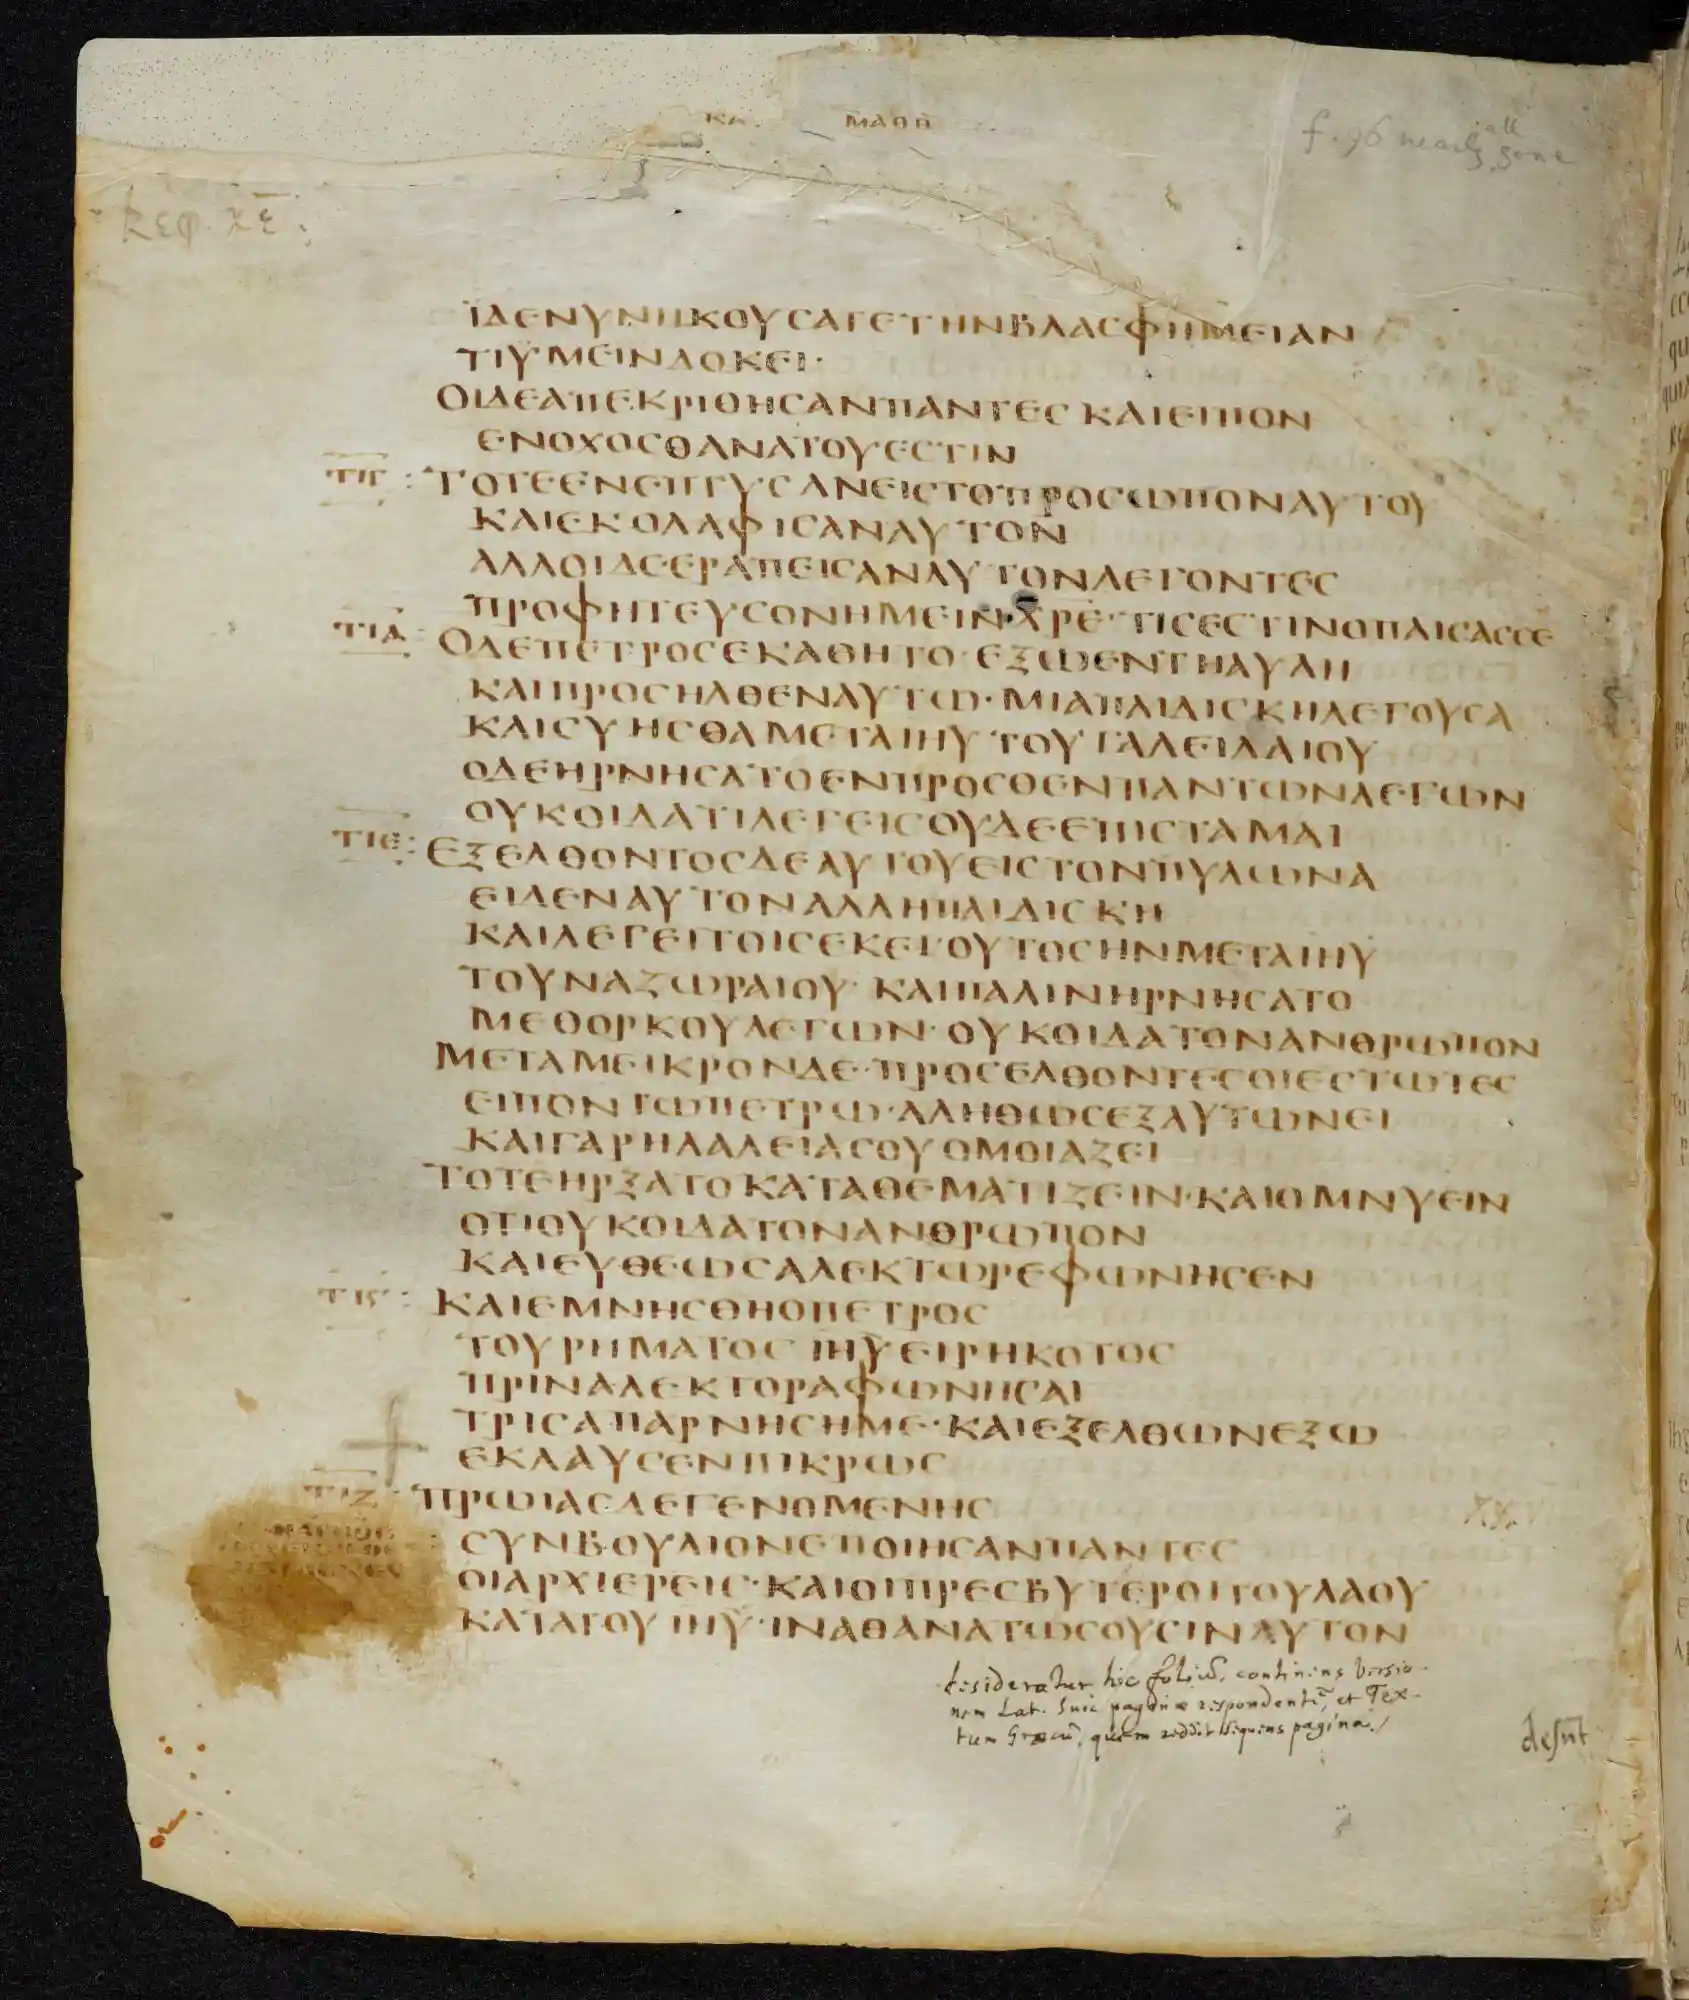 ΚΑ. ΜΑΘΘ
f. 96 nearly all gone
Κεφ. κε:
ΪΔΕΝΥΝΗΚΟΥСΑΤΕΤΗΝΒΛΑСΦΗΜΕΙΑΝ
ΤΙΫΜΕΙΝΔΟΚΕΙ·
ΟΙΔΕΑΠΕΚΡΙΘΗСΑΝΠΑΝΤΕС ΚΑΙΕΙΠΟΝ
ΕΝΟΧΟСΘΑΝΑΤΟΥΕСΤΙΝ
ΤΙΓ : ΤΟΤΕΕΝΕΠΤΥСΑΝΕΙСΤΟΠΡΟСΩΠΟΝΑΥΤΟΥ
ΚΑΙΕΚΟΛΑΦΙСΑΝΑΥΤΟΝ
ΑΛΛΟΙΔΕ·ΕΡΑΠΕΙСΑΝΑΥΤΟΝΛΕΓΟΝΤΕС
ΠΡΟΦΗΤΕΥСΟΝΗΜΕΙΝΧΡΕ·ΤΙСΕСΤΙΝΟΠΑΙСΑССΕ
ΤΙΔ : ΟΔΕΠΕΤΡΟСΕΚΑΘΗΤΟ·ΕΞΩΕΝΤΗΑΥΛΗ
ΚΑΙΠΡΟСΗΛΘΕΝΑΥΤΩ·ΜΙΑΠΑΙΔΙСΚΗΛΕΓΟΥСΑ
ΚΑΙСΥΗСΘΑΜΕΤΑΙΗΥ ΤΟΥΓΑΛΕΙΛΑΙΟΥ
ΟΔΕΗΡΝΗСΑΤΟΕΝΠΡΟСΘΕΝΠΑΝΤΩΝΛΕΓΩΝ
ΟΥΚΟΙΔΑΤΙΛΕΓΕΙСΟΥΔΕΕΠΙСΤΑΜΑΙ
ΤΙΕ : ΕΞΕΛΘΟΝΤΟСΔΕΑΥΤΟΥΕΙСΤΟΝΠΥΛΩΝΑ
ΕΙΔΕΝΑΥΤΟΝΑΛΛΗΠΑΙΔΙСΚΗ
ΚΑΙΛΕΓΕΙΤΟΙСΕΚΕΙ·ΟΥΤΟСΗΝΜΕΤΑΙΗΥ
ΤΟΥΝΑΖΩΡΑΙΟΥ· ΚΑΙΠΑΛΙΝΗΡΝΗСΑΤΟ
ΜΕΘΟΡΚΟΥΛΕΓΩΝ·ΟΥΚΟΙΔΑΤΟΝΑΝΘΡΩΠΟΝ
ΜΕΤΑΜΕΙΚΡΟΝΔΕ·ΠΡΟСΕΛΘΟΝΤΕСΟΙΕСΤΩΤΕС
ΕΙΠΟΝΤΩΠΕΤΡΩ·ΑΛΗΘΩСΕΞΑΥΤΩΝΕΙ
ΚΑΙΓΑΡΗΛΑΛΕΙΑСΟΥΟΜΟΙΑΖΕΙ
ΤΟΤΕΗΡΞΑΤΟΚΑΤΑΘΕΜΑΤΙΖΕΙΝ·ΚΑΙΟΜΝΥΕΙΝ
ΟΤΙΟΥΚΟΙΔΑΤΟΝΑΝΘΡΩΠΟΝ
ΚΑΙΕΥΘΕΩСΑΛΕΚΤΩΡΕΦΩΝΗСΕΝ
ΚΑΙΕΜΝΗСΘΗΟΠΕΤΡΟС
ΤΟΥΡΗΜΑΤΟС ΙΗΥΕΙΡΗΚΟΤΟС
ΠΡΙΝΑΛΕΚΤΟΡΑΦΩΝΗСΑΙ
ΤΡΙСΑΠΑΡΝΗСΗΜΕ·ΚΑΙΕΞΕΛΘΩΝΕΞΩ
ΕΚΛΑΥСΕΝΠΙΚΡΩС
ΤΙΖ ΠΡΩΙΑСΔΕΓΕΝΟΜΕΝΗС
СΥΝΒΟΥΛΙΟΝΕΠΟΙΗСΑΝΠΑΝΤΕС
ΟΙΑΡΧΙΕΡΕΙС·ΚΑΙΟΙΠΡΕСΒΥΤΕΡΟΙΤΟΥΛΑΟΥ
ΚΑΤΑΤΟΥ ΙΗΥ·ΙΝΑΘΑΝΑΤΩСΟΥСΙΝΑΥΤΟΝ
desideratur hic foliũ, continens versio-
nem Lat. huic paginæ respondentẽ, et Tex-
tum Græcũ, quem reddit sequens pagina./
desũt